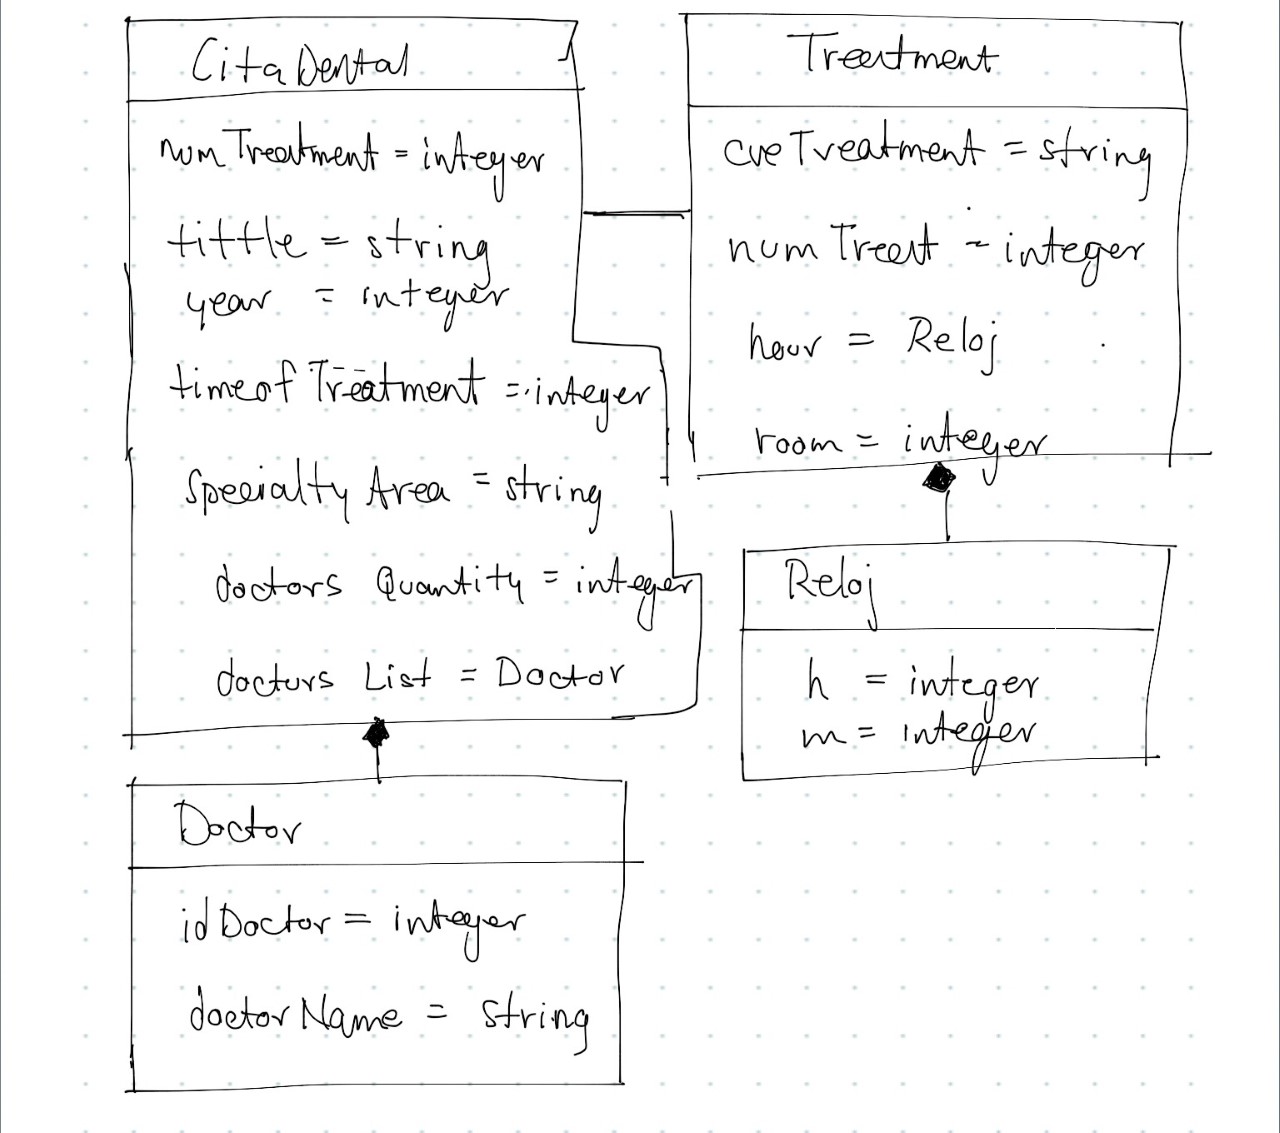 CitaDental
numTreatment = integer
tittle = string
year = integer
timeof Treatment = integer
Specialty Area = string
doctors Quantity = integer
doctors List = Doctor
Treatment
cveTreatment = string
numTreat - integer
hour = Reloj
room = integer
Reloj
h = integer
m = integer
Doctor
idDoctor = integer
doctorName = string